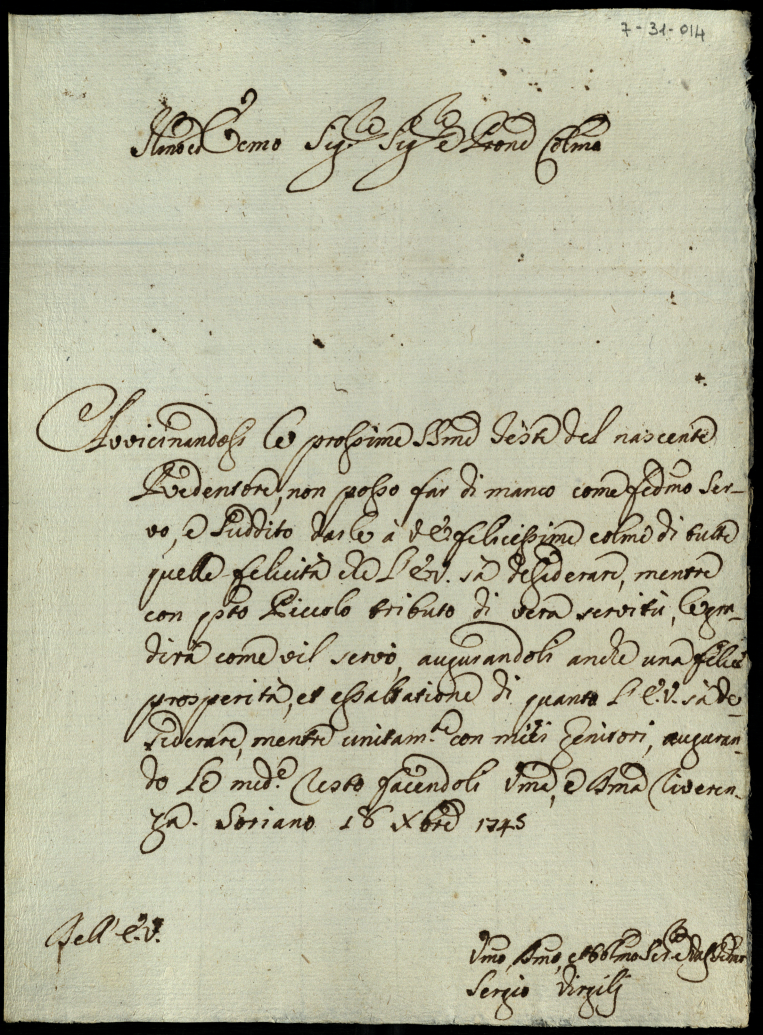 7-31-014
Illmo ed Eccmo Sig.re Sig.re e Prone Colmo
Avvicinandosi le prossime SSme Feste del nascente
Redentore, non posso far di manco come fedmo Ser-
vo, e Suddito darle à V.E. felicissime colme di tutte
quelle felicità che l'E.V. sà desiderare, mentre
con pñto Piccolo tributo di vera servitù, le gra-
dirà come vil servo, augurandoli anche una felice
prosperità, et essaltatione di quanto l'E.V. sà de-
siderare, mentre unitam.te con miei Genitori, auguran-
do Le med.e resto facendoli Vma, e Dma riveren-
za. Soriano 16 Xbre 1745
Dell'E.V.
Vmo, Dmo, et Obblmo Ser.re
Sergio Virgilij